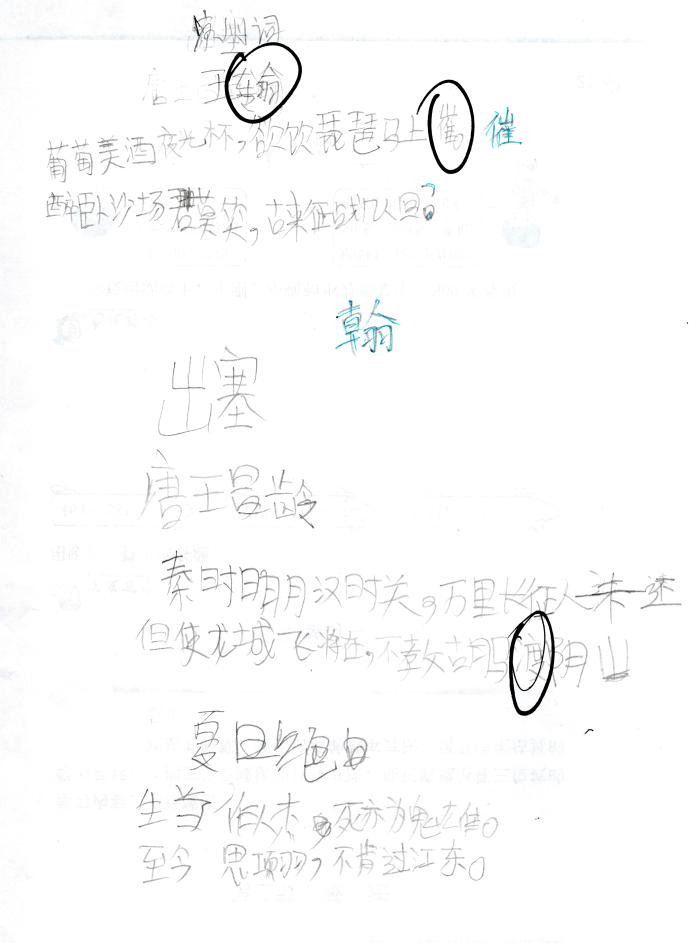 凉州词
唐 王翰
葡萄美酒夜光杯，欲饮琵琶马上 催
醉卧沙场君莫笑，古来征战几人回？
翰
出塞
唐王昌龄
秦时明月汉时关，万里长征人未还
但使龙城飞将在，不教胡马度阴山
夏日绝句
生当作人杰，死亦为鬼雄。
至今思项羽，不肯过江东。